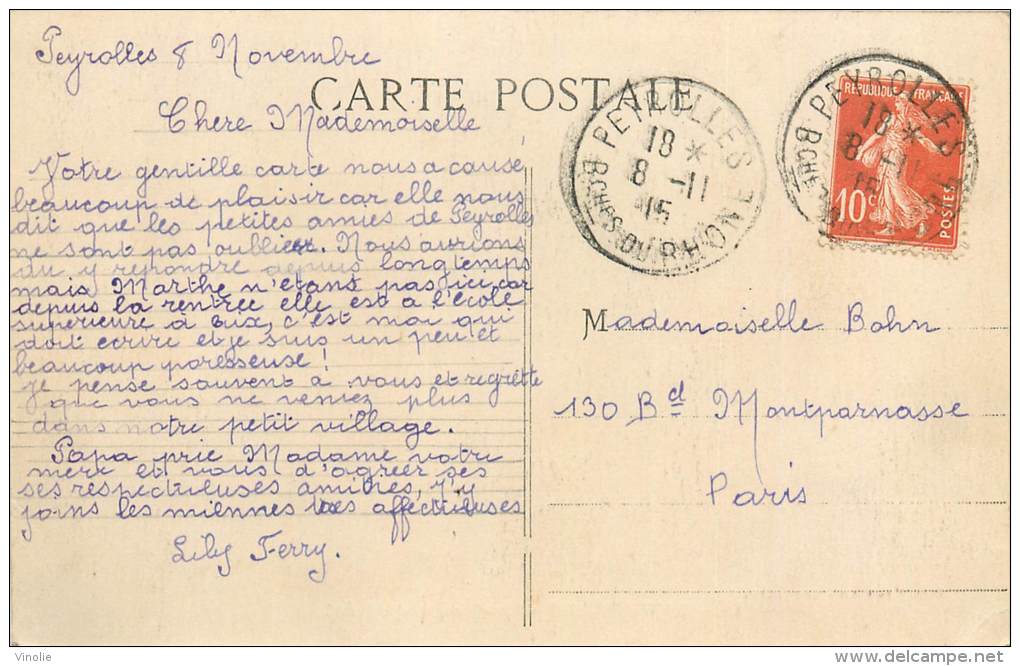 Peyrolles 8 Novembre
CARTE POSTALE
Chere Mademoiselle
Votre gentille carte nous a causé
beaucoup de plaisir car elle nous
dit que les petites amies de Peyrolles
ne sont pas oubliées. Nous aurions
du y repondre depuis longtemps
mais Marthe n'étant pas ici car
depuis la rentrée elle est a l'école
superieure à Aix, c'est moi qui
doit ecrire et je suis un peu et
beaucoup paresseuse!
je pense souvent à vous et regrette
que vous ne veniez plus
dans notre petit village.
Papa prie Madame votre
mere et vous d'agréer ses
ses respectueuses amitiés, j'y
joins les miennes affectueuses
Lily Ferry.
PEYROLLES
18 *
8 -11
15
BCHES DU RHONE
PEYROLLES
18 *
8 -11
15
BCHES
REPUBLIQUE FRANÇAISE
10 c
POSTES
Mademoiselle Bohn
130 Bd Montparnasse
Paris
Vinolie
delcampe.net